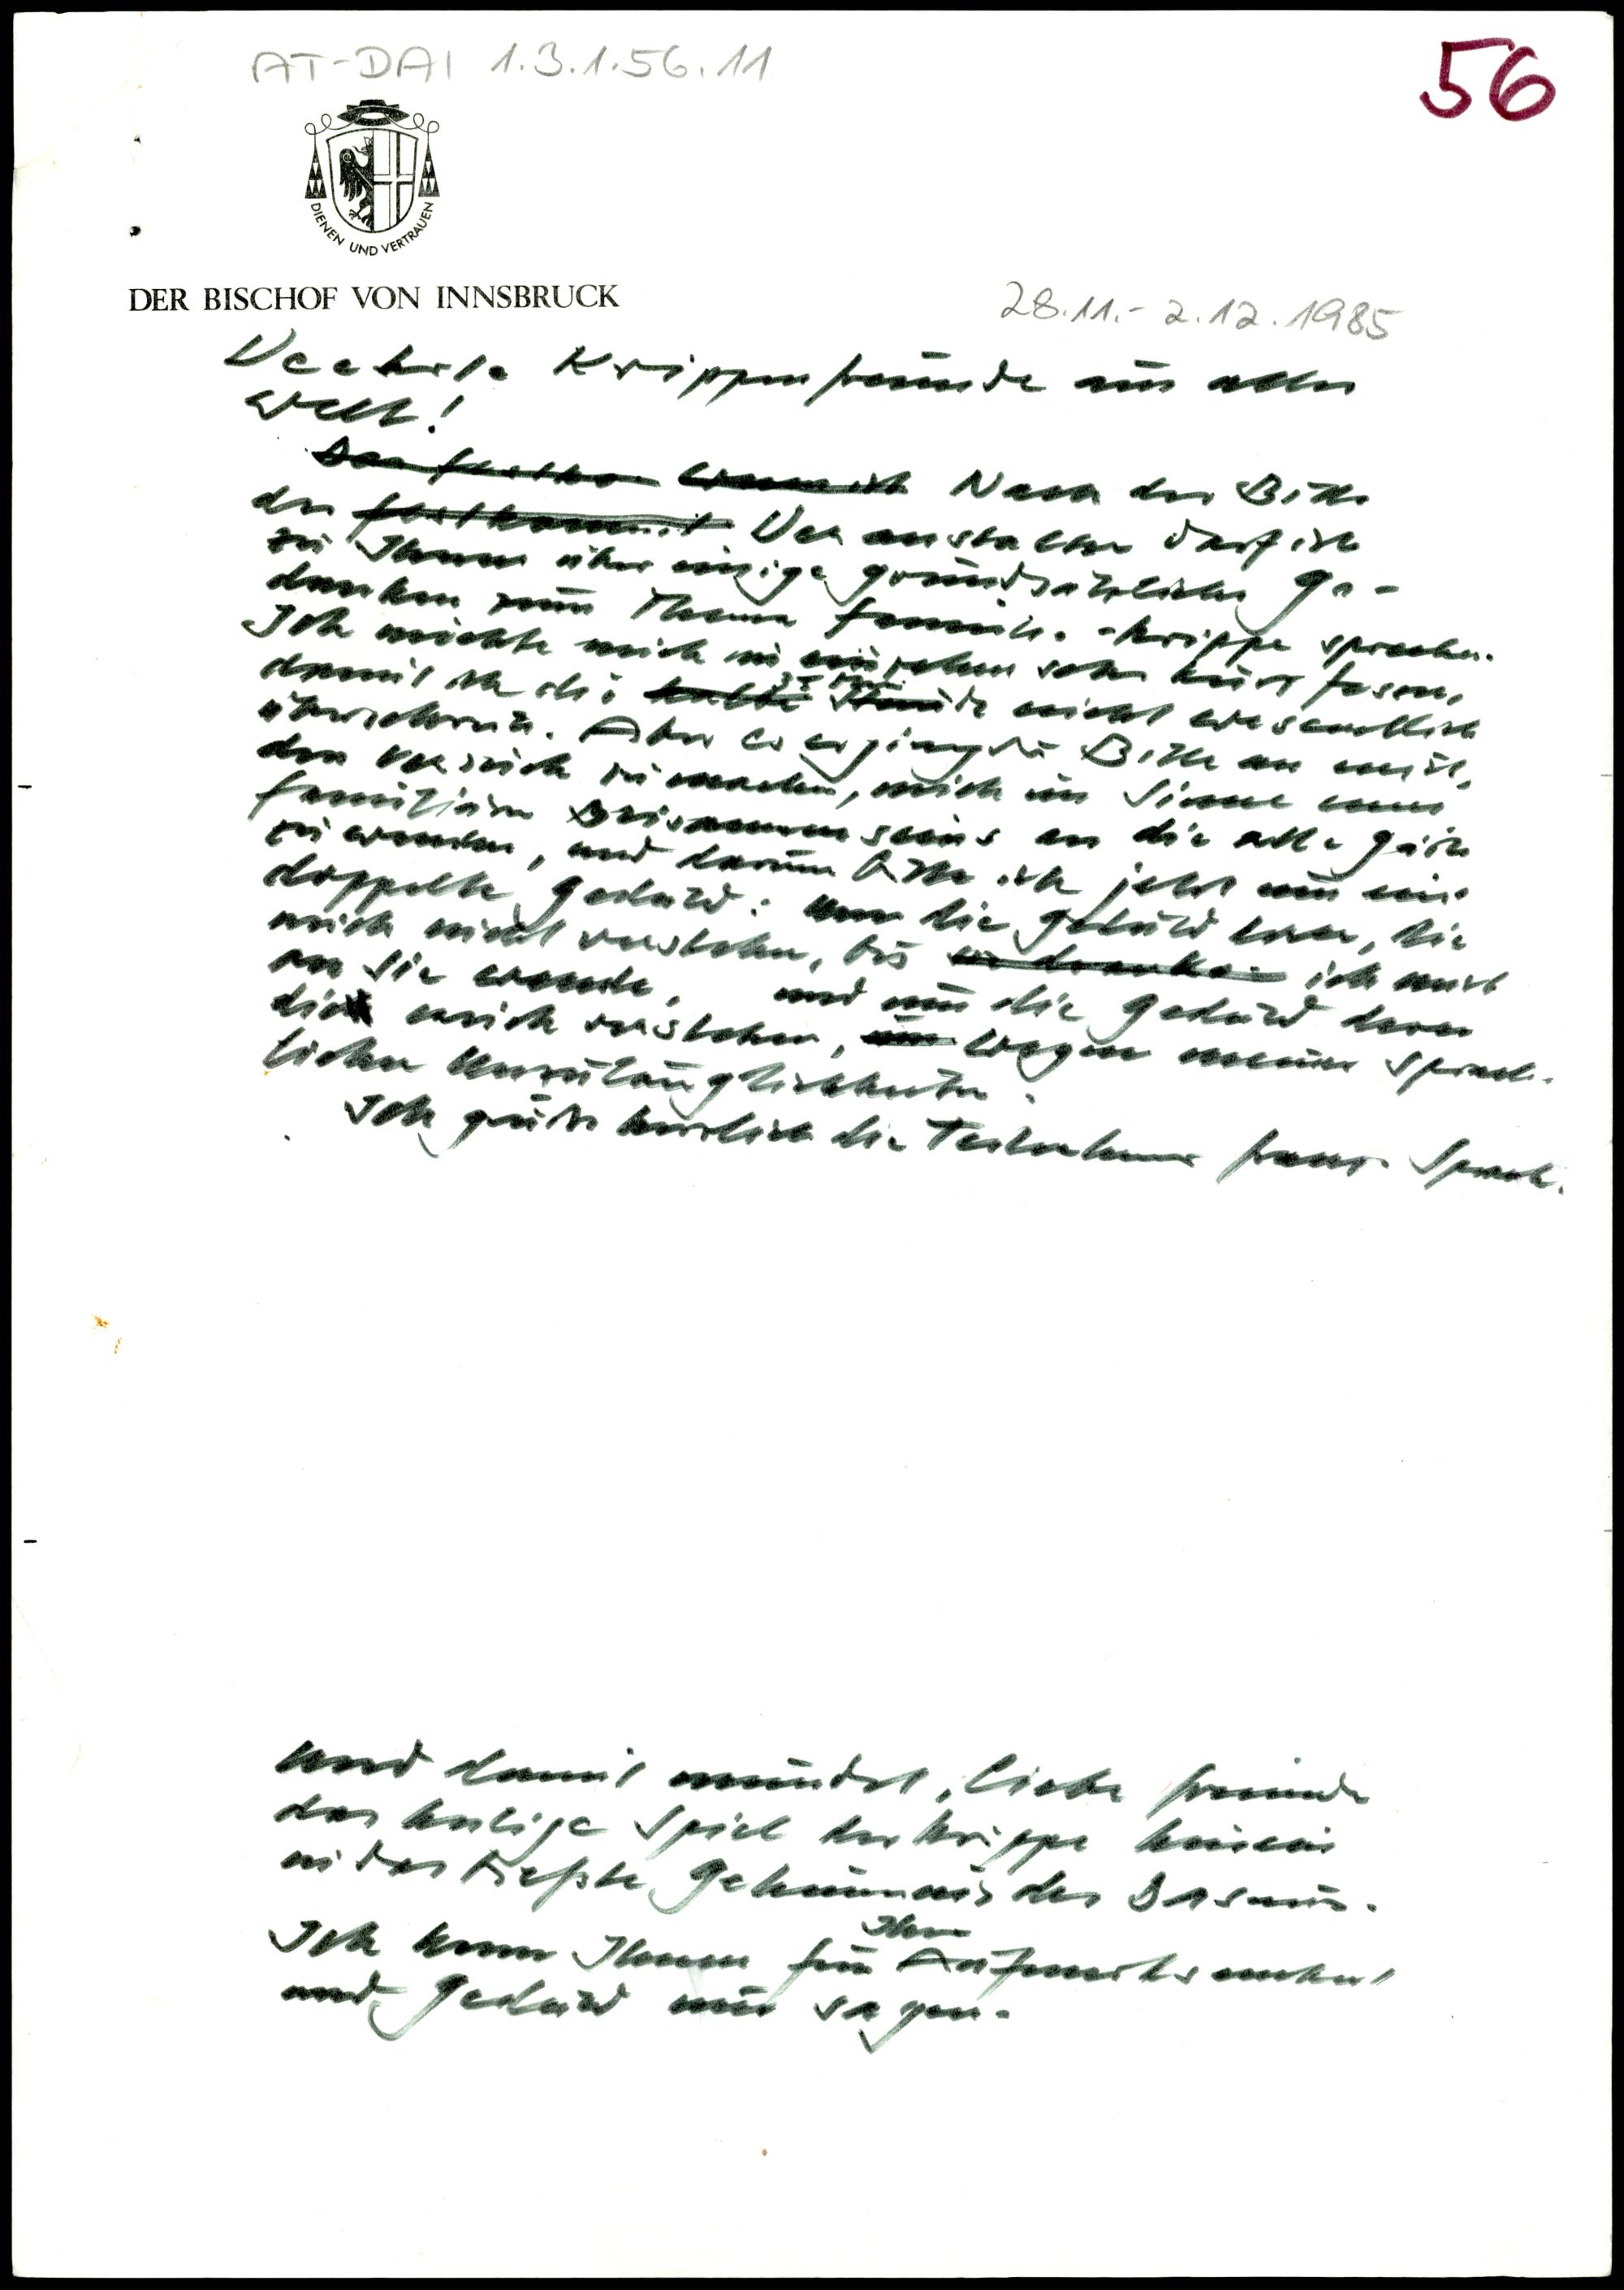 AT-DAI 1.3.1.56.11
56
DIENEN UND VERTRAUEN
DER BISCHOF VON INNSBRUCK
28.11.-2.12.1985
Verehrte Krippenfreunde aus aller
Welt!
Nach der Bitte
der Veranstalter darf ich
zu Ihnen über einige grundsätzliche Ge-
danken zum Thema Familie - Krippe sprechen.
Ich möchte mich im einzelnen sehr kurz fassen,
damit ich die nicht wesentlich
überschreite. Aber es erging die Bitte an mich,
den Versuch zu machen, mich im Sinne eines
familiären Beisammenseins an die alle Gäste
zu wenden, und darum bitte ich jetzt um eine
doppelte Geduld: um die Geduld derer, die
mich nicht verstehen, bis ich mich
an sie wende, und um die Geduld derer
die mich verstehen, wegen meiner sprach-
lichen Unzulänglichkeiten.
Ich grüße herzlich die Teilnehmer franz. Sprache.
Und damit mündet, liebe Freunde
das heilige Spiel der Krippe hinein
in das tiefste Geheimnis des Daseins.
Ich kann Ihnen für Ihre Aufmerksamkeit
und Geduld nur sagen.